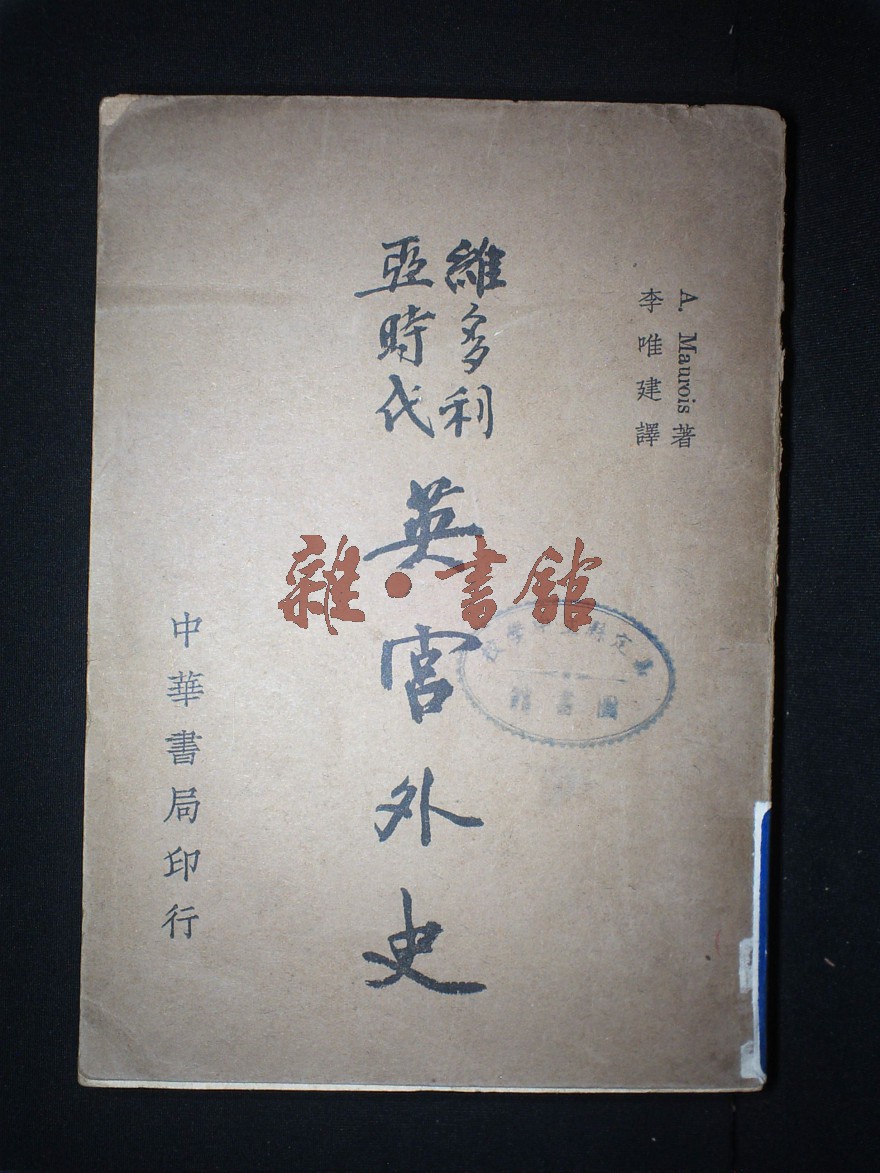 A. Maurois 著
李唯建譯
維多利
亞時代
英宮外史
中華書局印行
雜·書館
圖書館